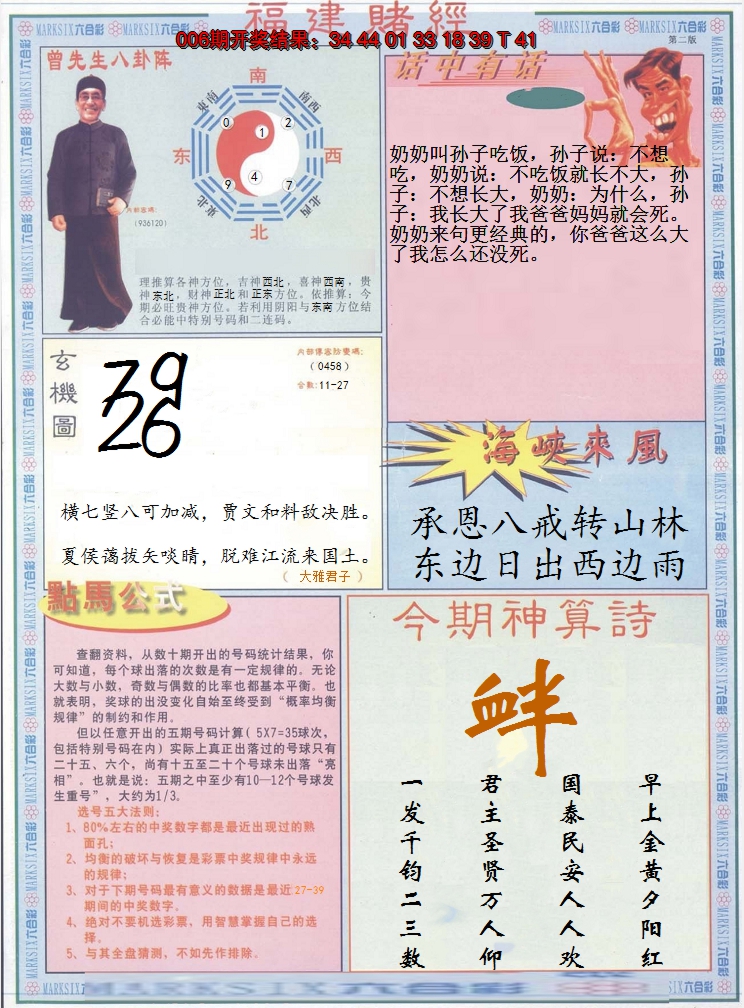 福建賭經
006期开奖结果：34 44 01 33 18 39 T 41
MARKSIX六合彩
第二版
曾先生八卦阵
南
东南
南西
0
1
2
东
西
9
4
7
東北
北西
北
内部密碼：
（936120）
理推算各神方位，吉神西北，喜神西南，贵
神东北，财神正北和正东方位。依推算：今
期必旺贵神方位。若利用阴阳与东南方位结
合必能中特别号码和二连码。
话中有话
奶奶叫孙子吃饭，孙子说：不想
吃，奶奶说：不吃饭就长不大，孙
子：不想长大，奶奶：为什么，孙
子：我长大了我爸爸妈妈就会死。
奶奶来句更经典的，你爸爸这么大
了我怎么还没死。
玄機圖
79
26
（0458）
合数:11-27
横七竖八可加减，贾文和料敌决胜。
夏侯蔼拔矢啖睛，脱难江流来国土。
（ 大雅君子 ）
海峽來風
承恩八戒转山林
东边日出西边雨
點馬公式
查翻资料，从数十期开出的号码统计结果，你
可知道，每个球出落的次数是有一定规律的。无论
大数与小数，奇数与偶数的比率也都基本平衡。也
就表明，奖球的出没变化自始至终受到“概率均衡
规律”的制约和作用。
但以任意开出的五期号码计算（5X7=35球次，
包括特别号码在内）实际上真正出落过的号球只有
二十五、六个，尚有十五至二十个号球未出落“亮
相”。也就是说：五期之中至少有10—12个号球发
生重号”，大约为1/3。
选号五大法则：
1、80%左右的中奖数字都是最近出现过的熟
面孔；
2、均衡的破坏与恢复是彩票中奖规律中永远
的规律；
3、对于下期号码最有意义的数据是最近27-39
期间的中奖数字。
4、绝对不要机选彩票，用智慧掌握自己的选
择。
5、与其全盘猜测，不如先作排除。
今期神算詩
衅
早上金黄夕阳红
国泰民安人人欢
君主圣贤万人仰
一发千钧二三数